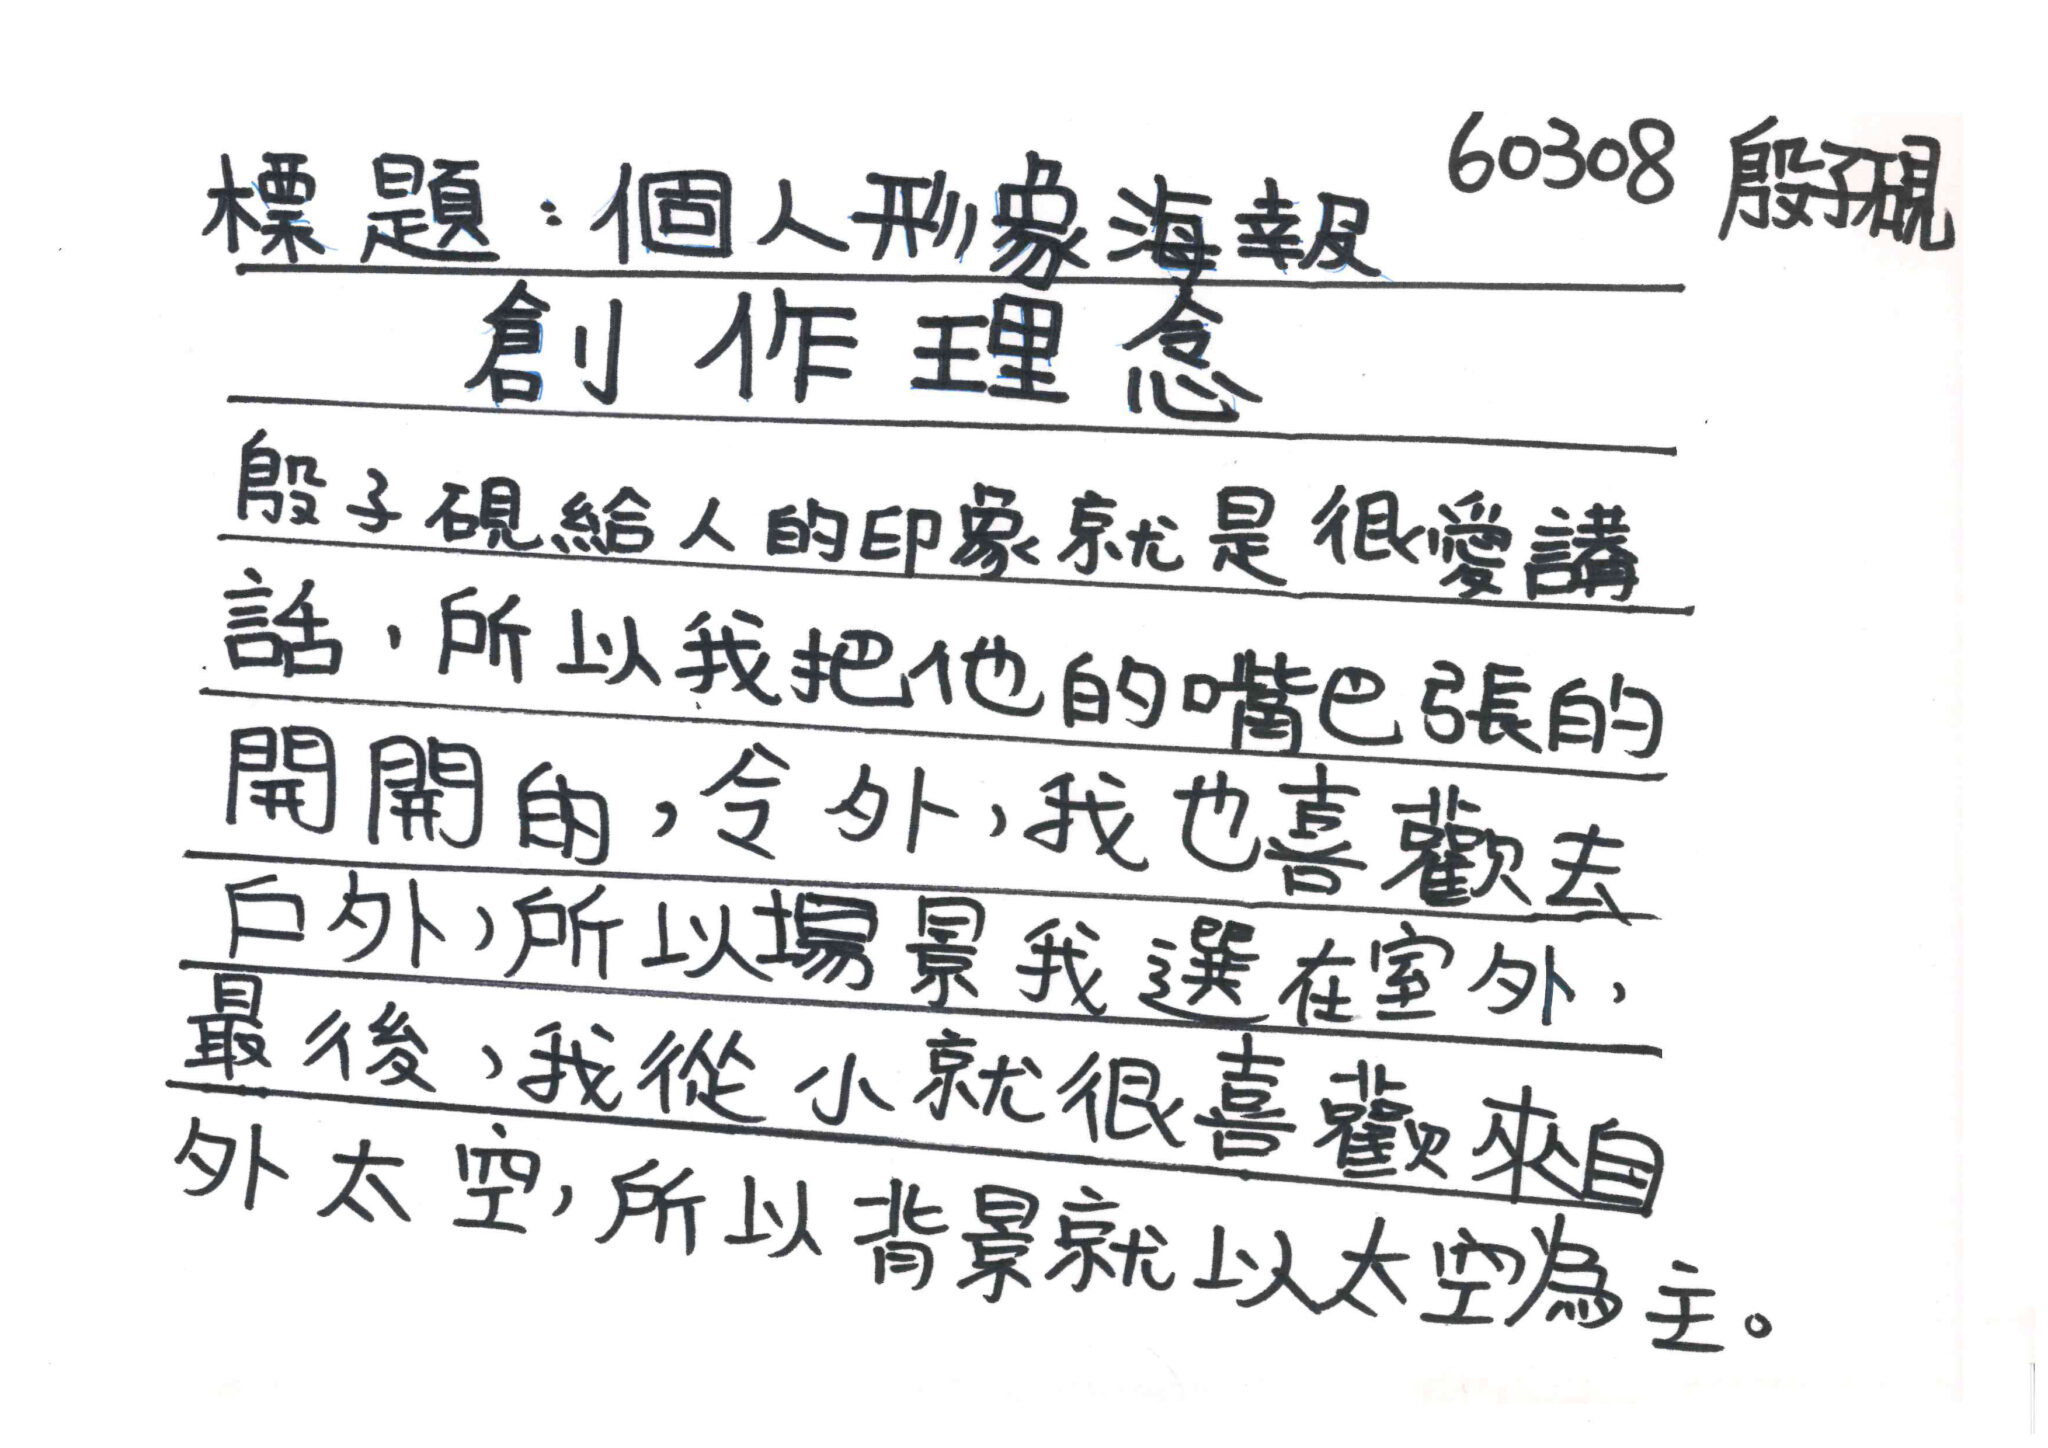 60308 殷子硯
標題：個人形象海報
創作理念
殷子硯給人的印象就是很愛講
話，所以我把他的嘴巴張的
開開的，令外，我也喜歡去
戶外，所以場景我選在室外，
最後，我從小就很喜歡來自
外太空，所以背景就以太空為主。